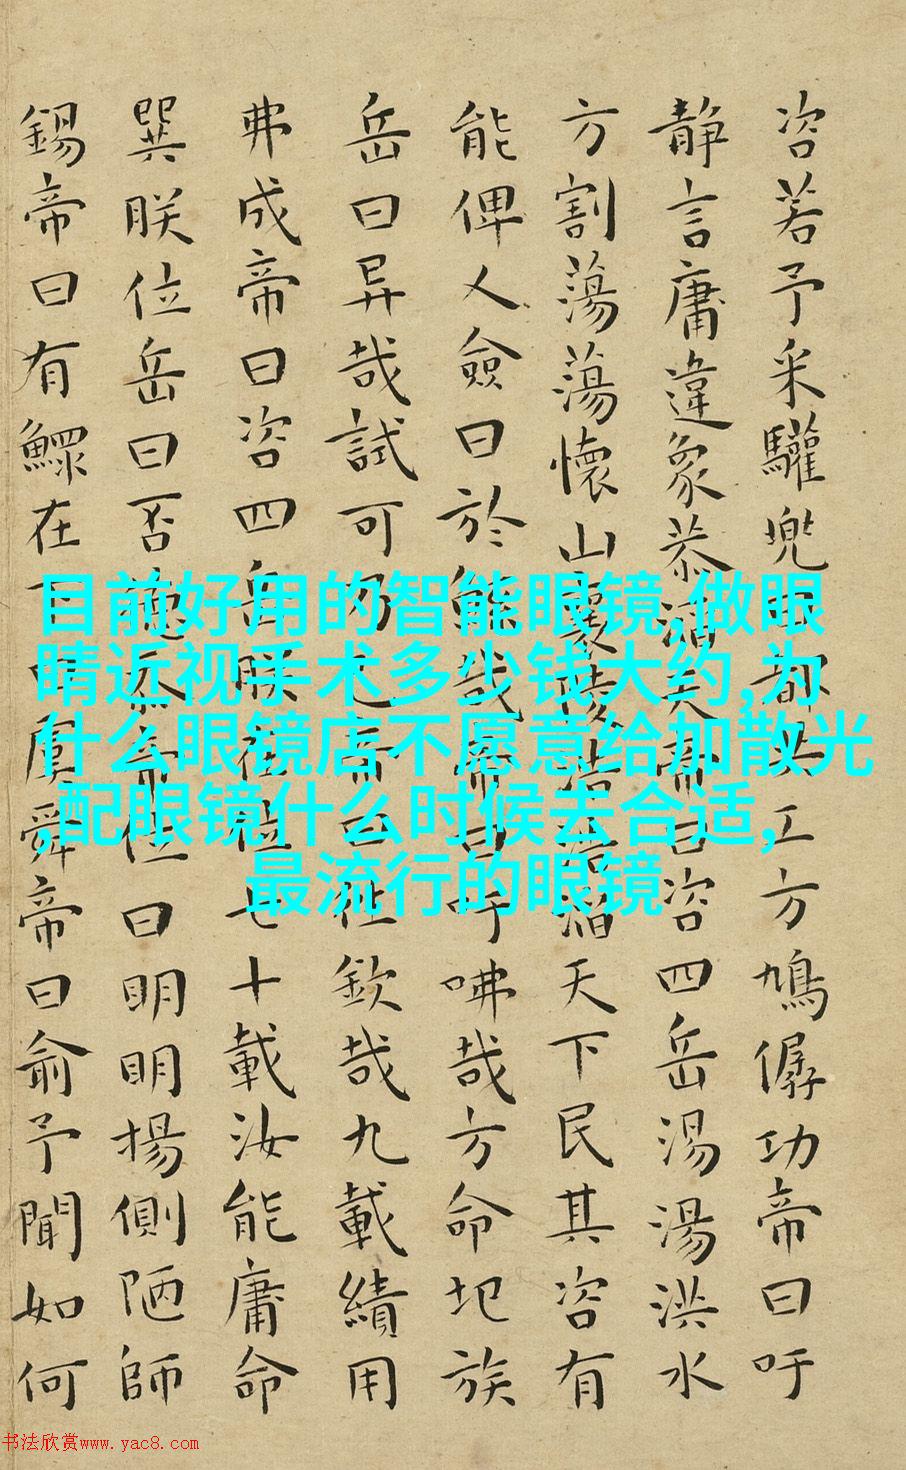 咨若予采驩兜曰都共工方鳩僝功帝曰吁
静言庸違象恭滔天帝曰咨四岳湯湯洪水
方割蕩蕩懷山襄陵浩浩滔天下民其咨有
能俾乂僉曰於鯀哉帝曰吁咈哉方命圮族
岳曰异哉試可乃已帝曰往欽哉九載績用
弗成帝曰咨四岳朕在位七十載汝能庸命
巽朕位岳曰否德忝帝位曰明明揚側陋師
錫帝曰有鰥在下曰虞舜帝曰俞予聞如何
目前好用的智能眼镜,做眼
睛近视手术多少钱大约,为
什么眼镜店不愿意给加散光
,配眼镜什么时候去合适,
最流行的眼镜
书法欣赏www.yac8.com